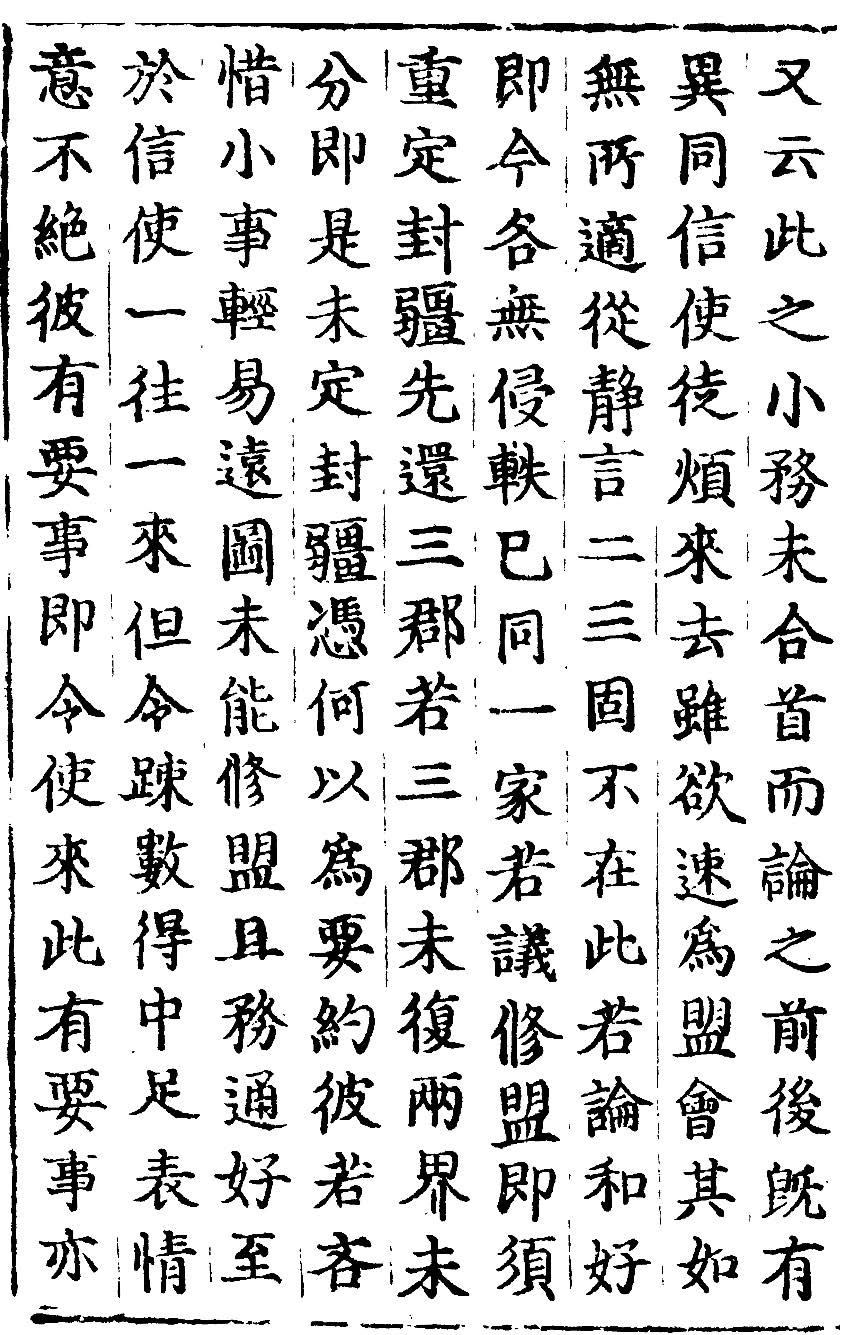 又云此之小務未合首而論之前後旣有
異同信使徒煩來去雖欲速爲盟會其如
無所適從静言二三固不在此若論和好
即今各無侵軼已同一家若議修盟即須
重定封疆先還三郡若三郡未復兩界未
分即是未定封疆憑何以爲要約彼若吝
惜小事輕易遠圖未能修盟且務通好至
於信使一往一來但令踈數得中足表情
意不絶彼有要事即令使來此有要事亦